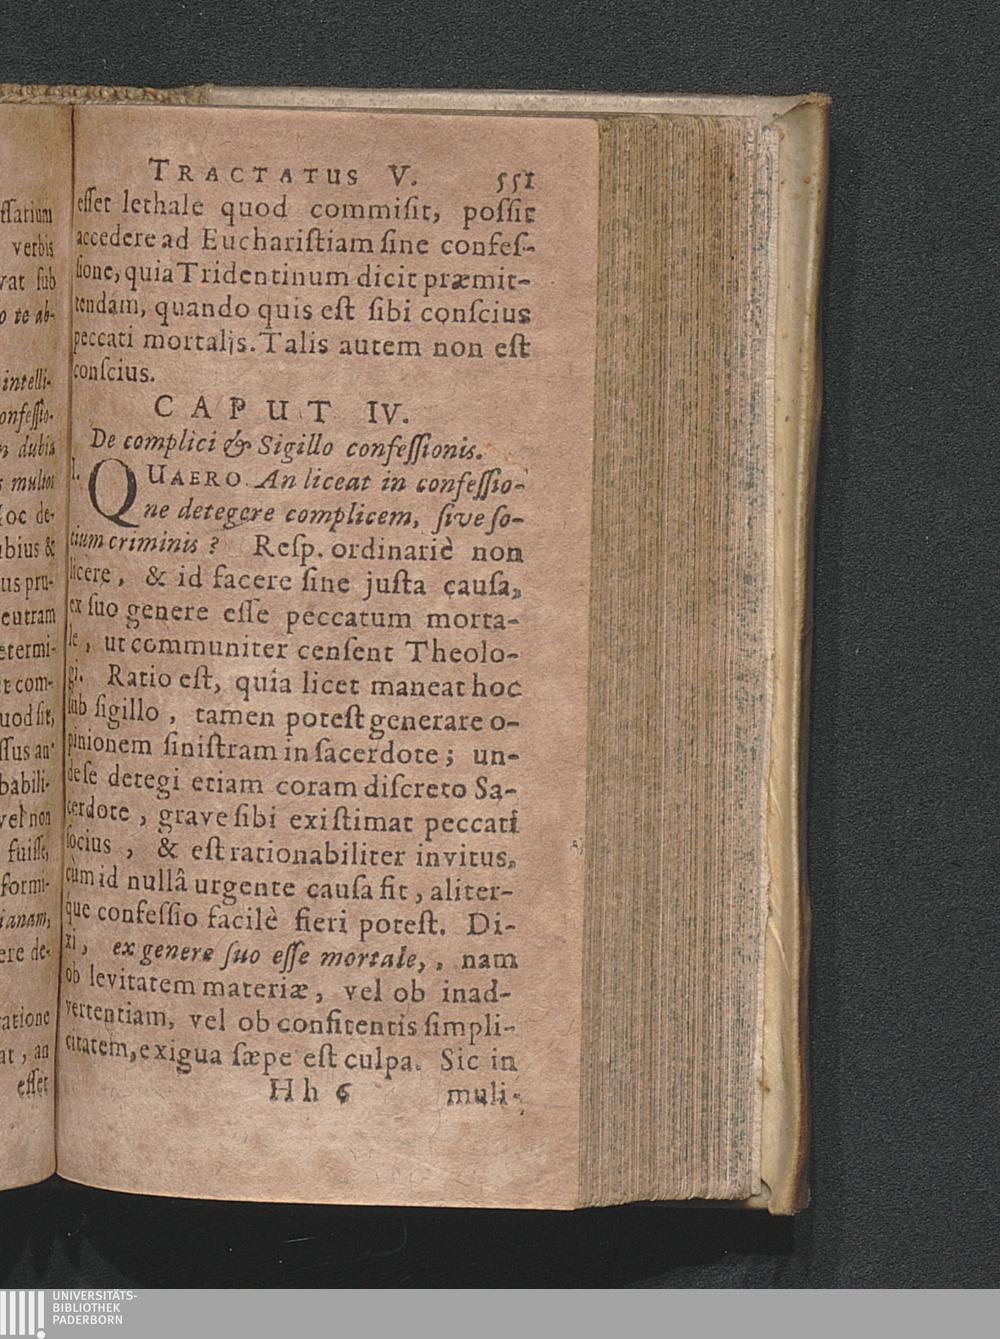 ſſarium
verbis
vat ſub
o te ab-
intelli-
onfeſſio-
n dubia
s multos
oc de-
bius &
us pru-
eutram
etermi-
t com-
uod ſit,
ſſus an
babili-
vel non
fuiſſe,
formi-
ianam,
ere de-
ratione
at, an
eſſet
TRACTATUS V. 551
eſſet lethale quod commiſit, poſſit
accedere ad Euchariſtiam ſine confeſ-
ſione, quia Tridentinum dicit præmit-
tendam, quando quis eſt ſibi conſcius
peccati mortalis. Talis autem non eſt
conſcius.
CAPUT IV.
De complici & Sigillo confeſſionis.
1. QUAERO An liceat in confeſſio-
ne detegere complicem, ſive ſo-
cium criminis? Reſp. ordinariè non
licere, & id facere ſine juſta cauſa,
ex ſuo genere eſſe peccatum morta-
le, ut communiter cenſent Theolo-
gi. Ratio eſt, quia licet maneat hoc
ſub ſigillo, tamen poteſt generare o-
pinionem ſiniſtram in ſacerdote; un-
de ſe detegi etiam coram diſcreto Sa-
cerdote, grave ſibi exiſtimat peccati
ſocius, & eſt rationabiliter invitus,
cùm id nullâ urgente cauſa fit, aliter-
que confeſſio facilè fieri poteſt. Di-
xi, ex genere ſuo eſſe mortale,, nam
ob levitatem materiæ, vel ob inad-
vertentiam, vel ob confitentis ſimpli-
citatem, exigua ſæpe eſt culpa. Sic in
Hh 6 muli-
UNIVERSITÄTS-
BIBLIOTHEK
PADERBORN